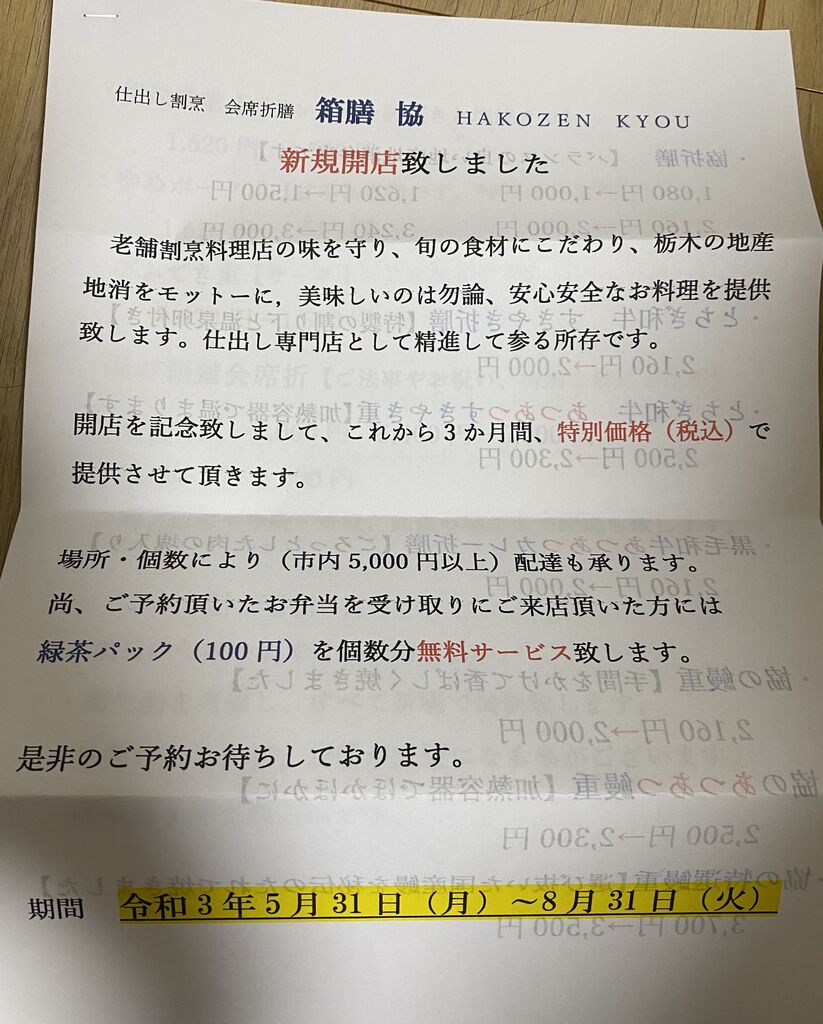 仕出し割烹　会席折膳　箱膳　協　HAKOZEN　KYOU
新規開店致しました
老舗割烹料理店の味を守り、旬の食材にこだわり、栃木の地産
地消をモットーに，美味しいのは勿論、安心安全なお料理を提供
致します。仕出し専門店として精進して参る所存です。
開店を記念致しまして、これから3か月間、特別価格（税込）で
提供させて頂きます。
場所・個数により（市内5,000円以上）配達も承ります。
尚、ご予約頂いたお弁当を受け取りにご来店頂いた方には
緑茶パック（100円）を個数分無料サービス致します。
是非のご予約お待ちしております。
期間　令和3年5月31日（月）～8月31日（火）